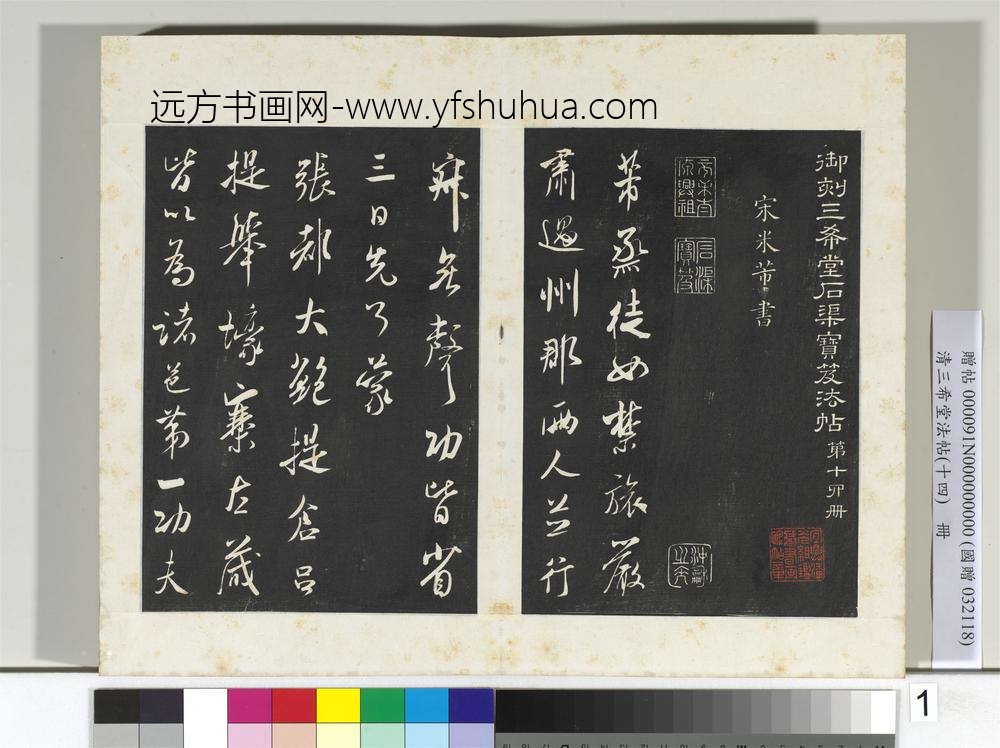 远方书画网-www.yfshuhua.com
御刻三希堂石渠寶笈法帖 第十四册
宋米芾書
芾烝徒如禁旅嚴
肅過州郡兩人並行
寂無聲功皆省
三日先了蒙
張都大鮑提倉呂
提舉壕寨左藏
皆以為諸邑第一功夫
贈帖 000091N000000000 (國贈 032118)
清三希堂法帖(十四) 冊
1